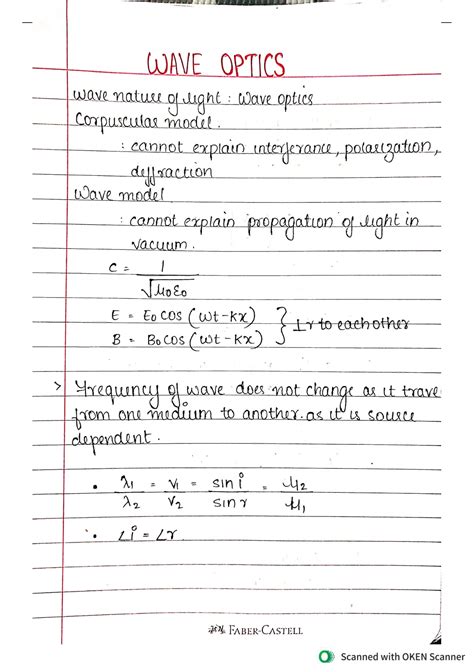 WAVE OPTICS
Wave nature of light : Wave optics
Corpuscular model.
: cannot explain interferance, polarization,
deffraction
Wave model
: cannot explain propagation of light in
vacuum.
C = 1/√μ0ε0
E = E0 cos (ωt - kx)
B = B0 cos (ωt - kx) } ⊥r to each other
> Frequency of wave does not change as it trave
from one medium to another. as it is source
dependent.
• λ1/λ2 = v1/v2 = sin i/sin r = μ2/μ1
• ∠i = ∠r
FABER-CASTELL
Scanned with OKEN Scanner